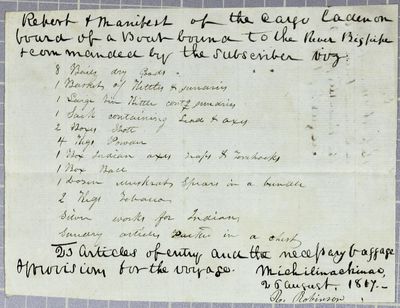 Report & Manifest of the Cargo Laden on
board of a Boat bound to the River
& commanded by the Subscriber viz:
8 Bales dry Goods
1 Basket of Kettles & sundries
1 Large Tin Kettle cont'g sundries
1 Sack containing Lead & axes
2 Boxes Shott
4 Kegs Powder
1 Box Indian axes & Tomhocks
1 Box Ball
1 Dozen muskrats Spears in a bundle
2 Kegs Tobacco
Silver works for Indians
Sundry articles in a chest
Articles of entry and the necessary baggage
& provisions for the voyage. Michilimackinac,
August, 1817.
Robinson